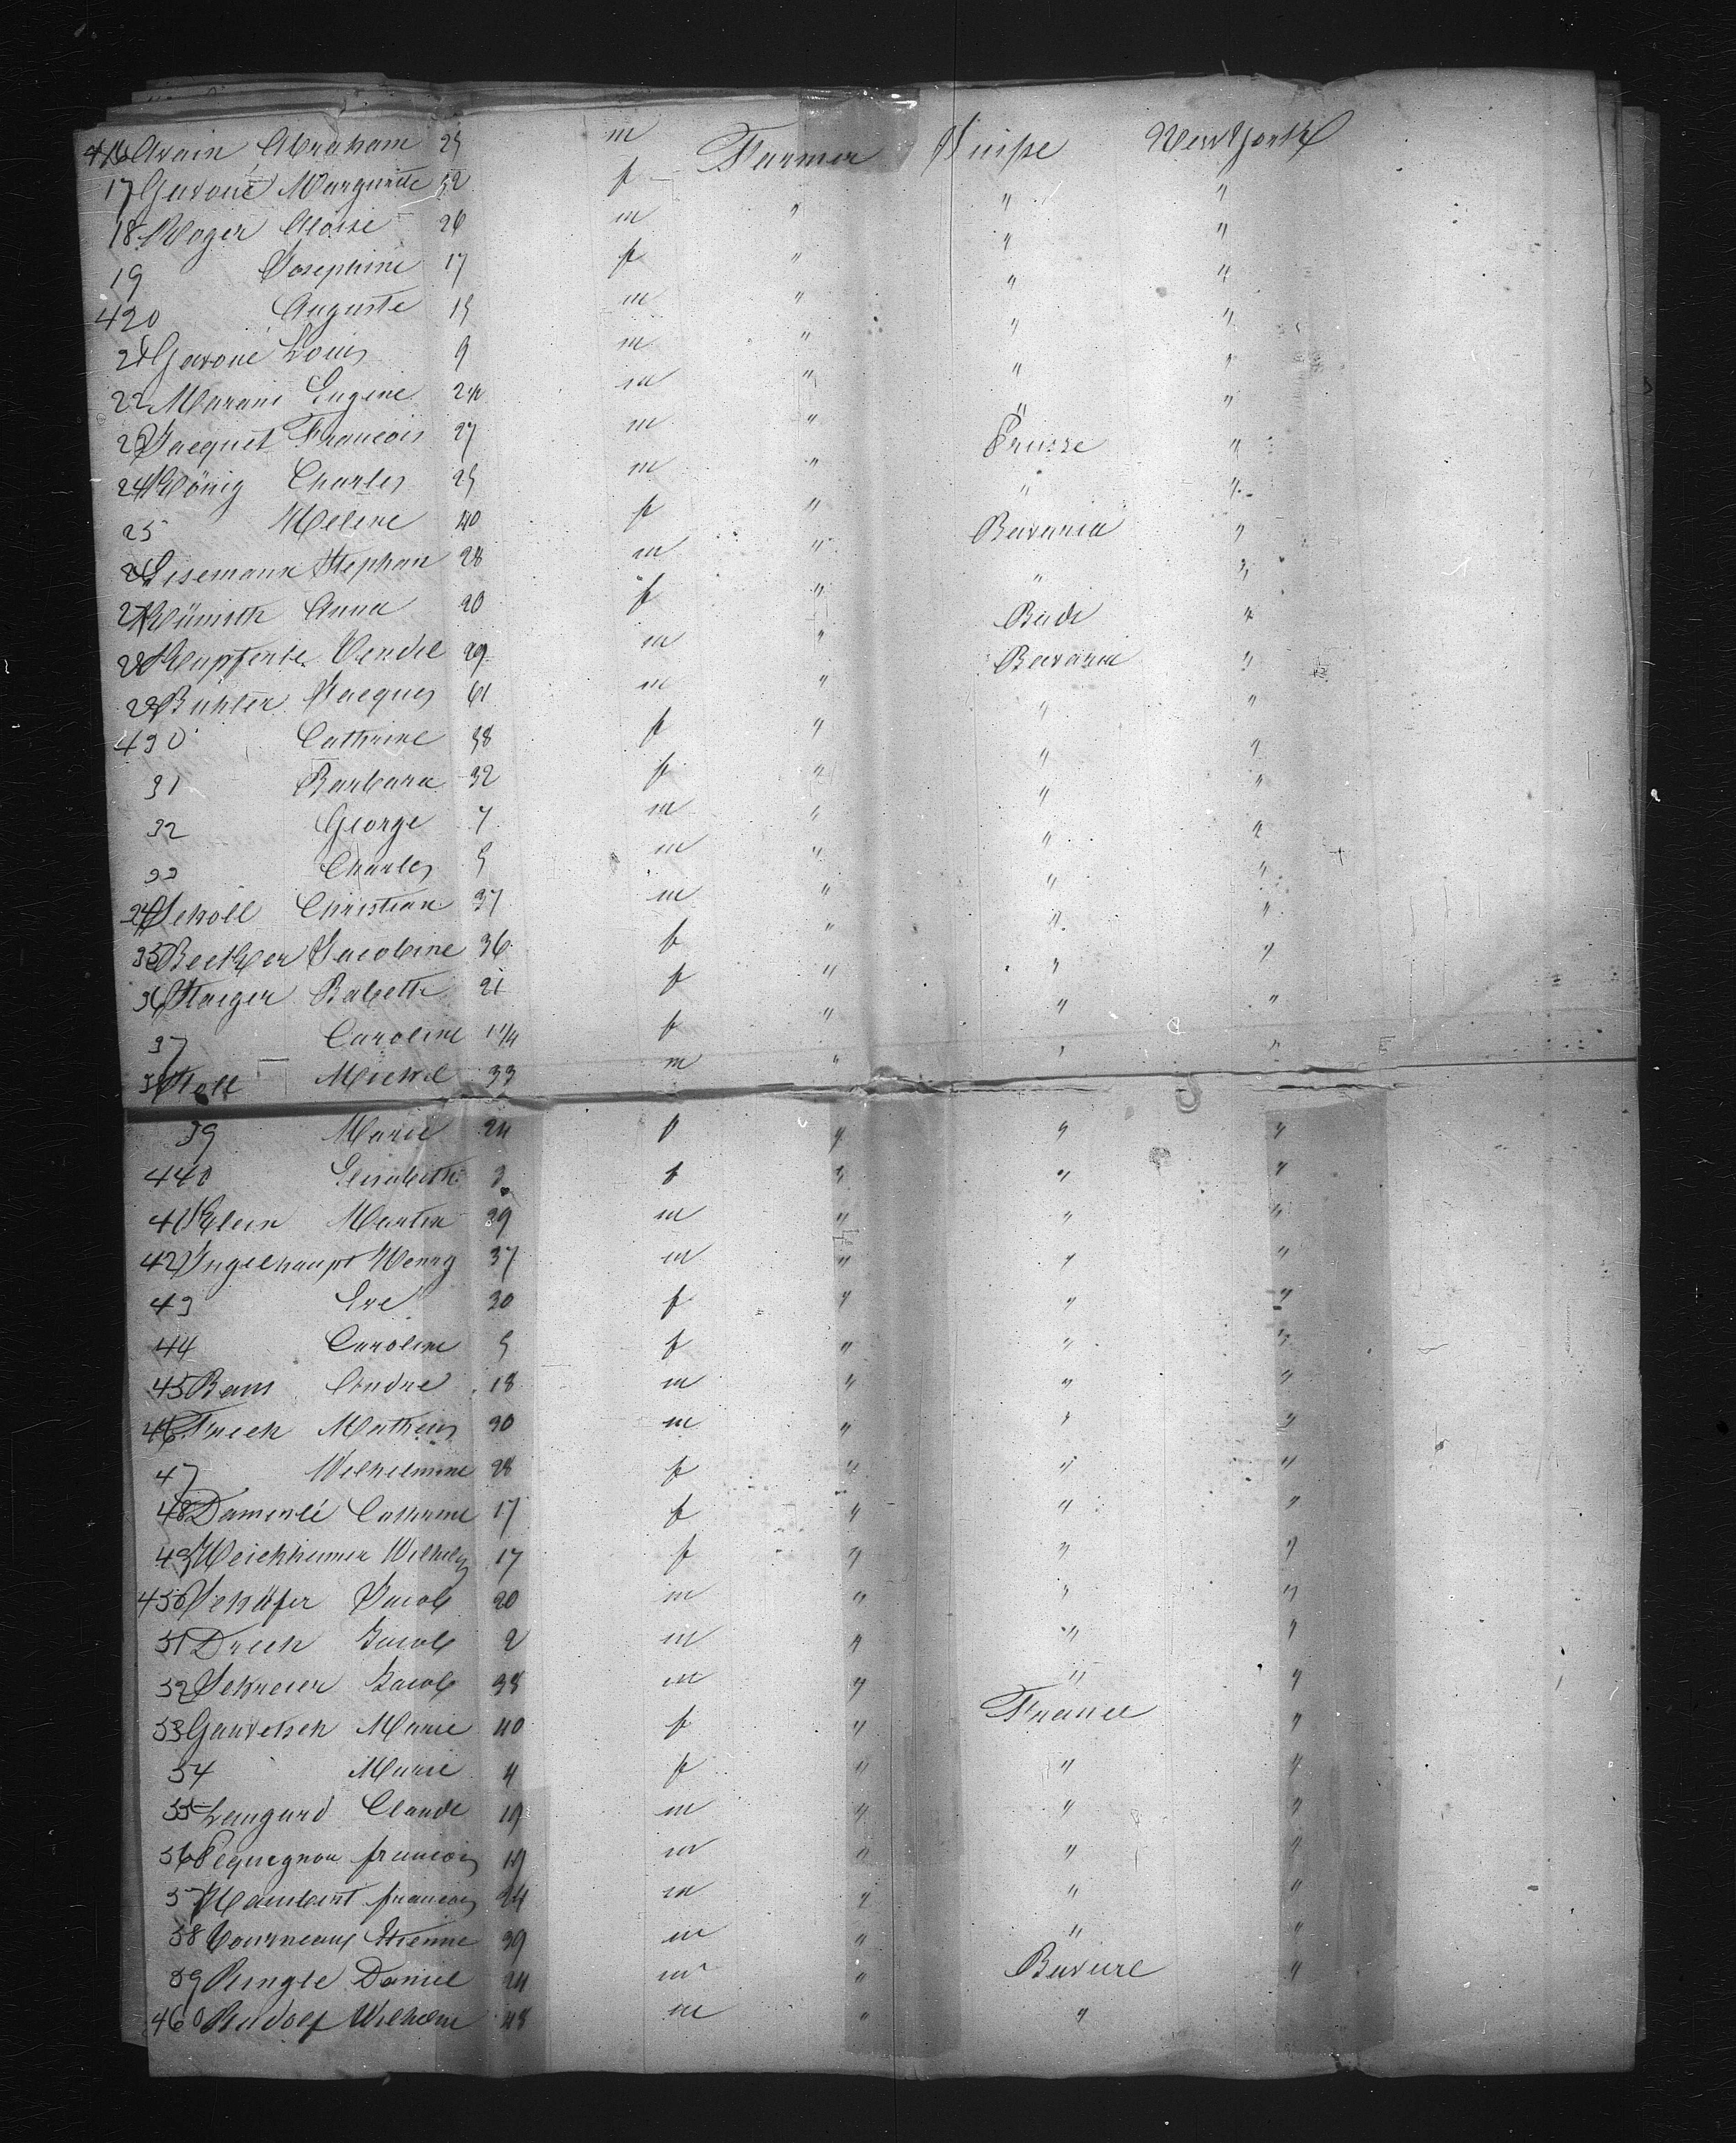 416 Avain Abraham 25 m Farmer Suisse New York
17 Gavoué Marguerite 52 f " " "
18 Roger Aloise 26 m " " "
19 Josephine 17 f " " "
420 Auguste 15 m " " "
21 Gavoué Louis 9 m " " "
22 Eugene 24 m " " "
23 Jacquet Francois 27 m " Prusse "
24 König Charles 25 m " " "
25 Helene 40 f " Bavaria "
26 Eisemann Stephan 28 m " " "
27 Anna 20 f " Bade "
28 Kupferle Vendel 29 m " Bavaria "
29 Buhler Jacques 61 m " " "
430 Cathrine 58 f " " "
31 Barbara 32 f " " "
32 George 7 m " " "
33 Charles 5 m " " "
34 Scholl Christian 37 m " " "
35 Becker Jacobine 36 f " " "
36 Staeger Babette 21 f " " "
37 Caroline 1 1/4 f " " "
38 Stoll Michel 33 m " " "
39 Marie 24 f " " "
440 Elisabeth 3 f " " "
41 Klein Martin 29 m " " "
42 Ingelhaupt Henry 37 m " " "
43 Eve 30 f " " "
44 Caroline 5 f " " "
45 Andre 18 m " " "
46 Mathias 30 m " " "
47 Wilhelmine 28 f " " "
48 Catherine 17 f " " "
49 Weichheimer 17 f " " "
450 Schäfer Jacob 20 m " " "
51 Drech Jacob 2 m " " "
52 Schreier Jacob 38 m " " "
53 Marie 40 f " France "
54 Marie 4 f " " "
55 Langard Claude 19 m " " "
56 Pequegnon francois 19 m " " "
57 Haubert francois 24 m " " "
58 Vourneaux Etienne 39 m " " "
59 Daniel 24 m " Baviere "
460 Rudolf Wilhelm 48 m " "